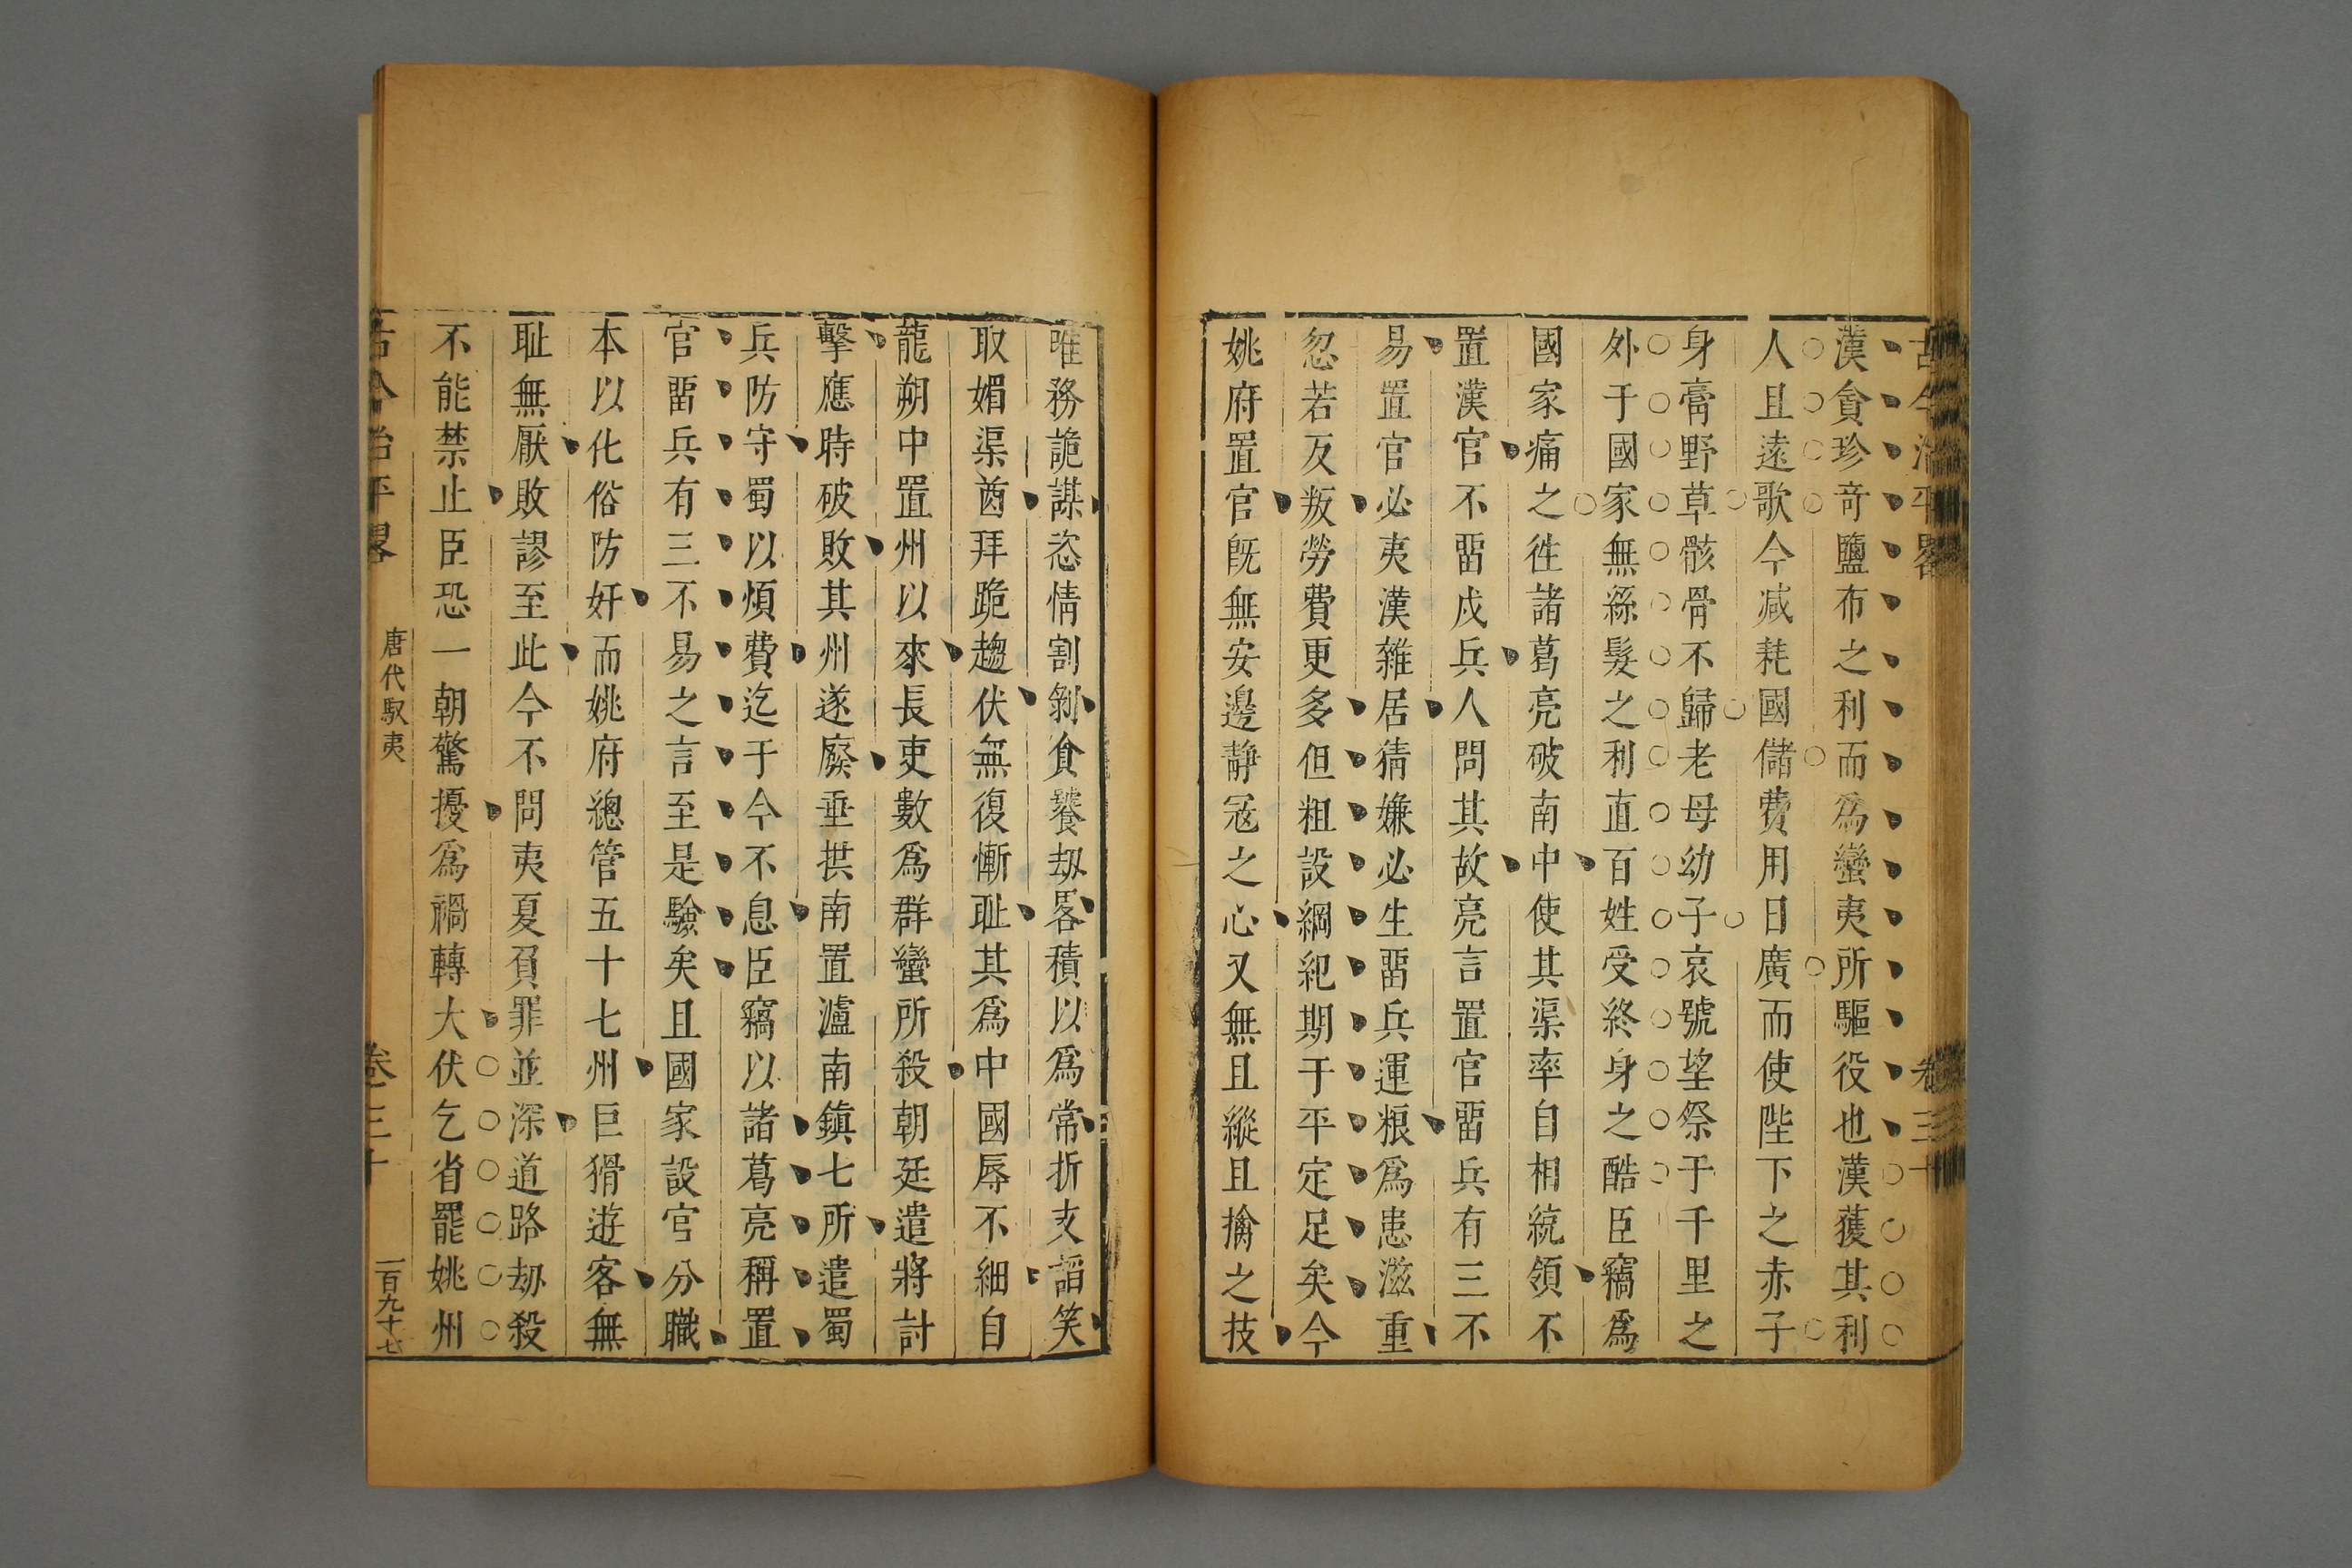 古今治平畧 卷三十
漢貪珍奇鹽布之利而爲蠻夷所驅役也漢獲其利
人且遠歌今减耗國儲費用日廣而使陛下之赤子
身膏野草骸骨不歸老母幼子哀號望祭于千里之
外于國家無絲髮之利直百姓受終身之酷臣竊爲
國家痛之徃諸葛亮破南中使其渠率自相統領不
置漢官不畱戍兵人問其故亮言置官畱兵有三不
易置官必夷漢雜居猜嫌必生畱兵運粮爲患滋重
忽若反叛勞費更多但粗設綱紀期于平定足矣今
姚府置官旣無安邊静冦之心又無且縱且擒之技
唯務詭謀恣情割剝食饕刼畧積以爲常折支謟笑
取媚渠酋拜跪趨伏無復慚耻其爲中國辱不細自
龍朔中置州以來長吏數爲群蠻所殺朝廷遣將討
擊應時破敗其州遂廢垂拱南置瀘南鎮七所遣蜀
兵防守蜀以煩費迄于今不息臣竊以諸葛亮稱置
官畱兵有三不易之言至是驗矣且國家設官分職
本以化俗防奸而姚府總管五十七州巨猾遊客無
耻無厭敗謬至此今不問夷夏負罪並深道路刼殺
不能禁止臣恐一朝驚擾爲禍轉大伏乞省罷姚州
古今治平畧 唐代馭夷 卷三十 一百九十七